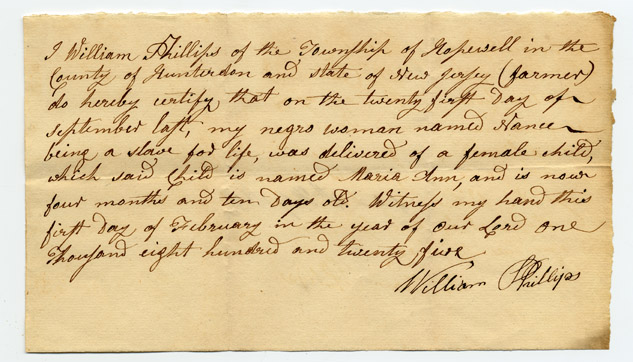 I William Phillips of the Township of Hopewell in the
County of Hunterdon and state of New Jersey (farmer)
do hereby certify, that on the twenty first Day of
september last, my negro woman named Nance
being a slave for life, was delivered of a female child,
which said Child is named Maria Ann, and is now
four months and ten Days old. Witness my hand this
first Day of February in the year of our Lord one
Thousand eight hundred and twenty five
William Phillips